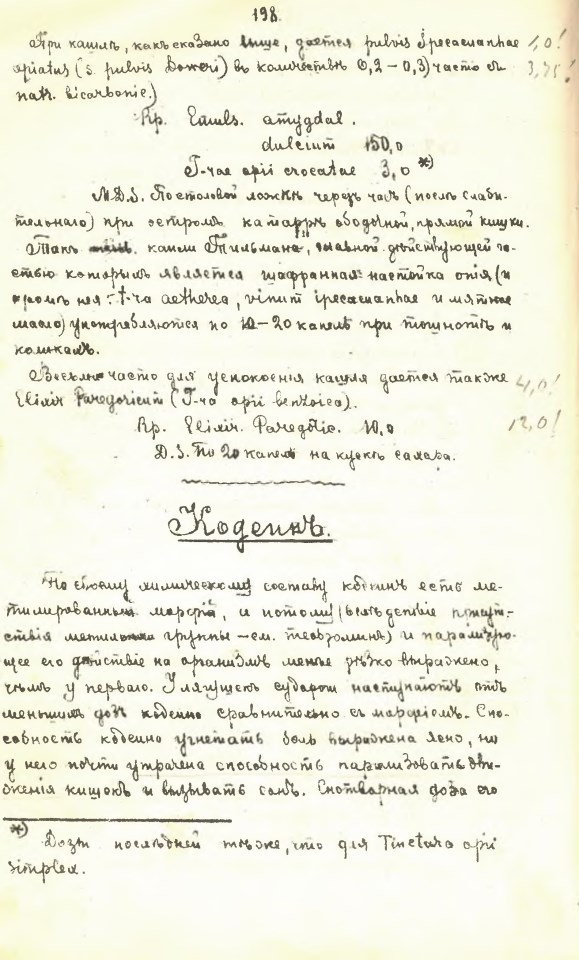 198.
При кашлѣ, какъ сказано выше, дается pulvis Ipecacuanhae 1,0!
opiatus (s. pulvis Doweri) въ количествѣ 0,2 – 0,3) часто съ 3,75!
natr. bicarbonic.)
Rp. Emuls. amygdal.
dulcium 150,0
T-rae opii crocatae 3,0 *)
M.D.S. По столовой ложкѣ черезъ часъ (послѣ слаби-
тельнаго) при остромъ катаррѣ ободочной, прямой кишки.
Такъ капли Тильмана, главной дѣйствующей ча-
стью которыхъ является шафранная настойка опія (и
кромѣ нея: t-ra aetherea, vinum ipecacuanhae и мятное
масло) употребляются по 10–20 капель при тошнотѣ и
коликахъ.
Весьма часто для успокоенія кашля дается также 4,0!
Elixir Paregoricum (T-ra opii benzoica).
Rp. Elixir. Paregoric. 10,0 12,0!
D.S. По 20 капель на кускѣ сахара.
Кодеинъ.
По своему химическому составу кодеинъ есть ме-
тилированный морфій, и потому (вслѣдствіе присут-
ствія метильной группы – см. теоброминъ) и парализую-
щее его дѣйствіе на организмъ менѣе рѣзко выражено,
чѣмъ у перваго. У лягушекъ судороги наступаютъ отъ
меньшихъ дозъ кодеина сравнительно съ морфіемъ. Спо-
собность кодеина угнетать боль выражена ясно, но
у него почти утрачена способность парализовать дви-
женія кишокъ и вызывать сонъ. Снотворная доза его
*) Дозы послѣдней тѣже, что для Tinctura opii
simplex.